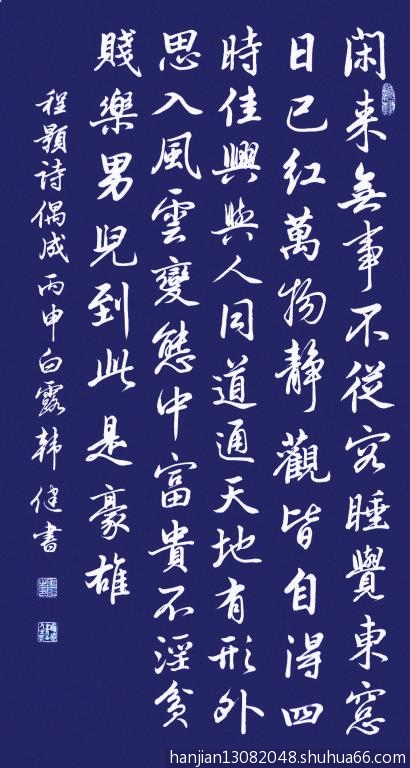 閑来無事不從容睡覺東窓
日已红萬物静觀皆自得四
時佳興與人同道通天地有形外
思入風雲變態中富貴不淫貧
賤樂男兒到此是豪雄
程顥诗偶成丙申白露韩健書
hanjian13082048.shuhua66.com